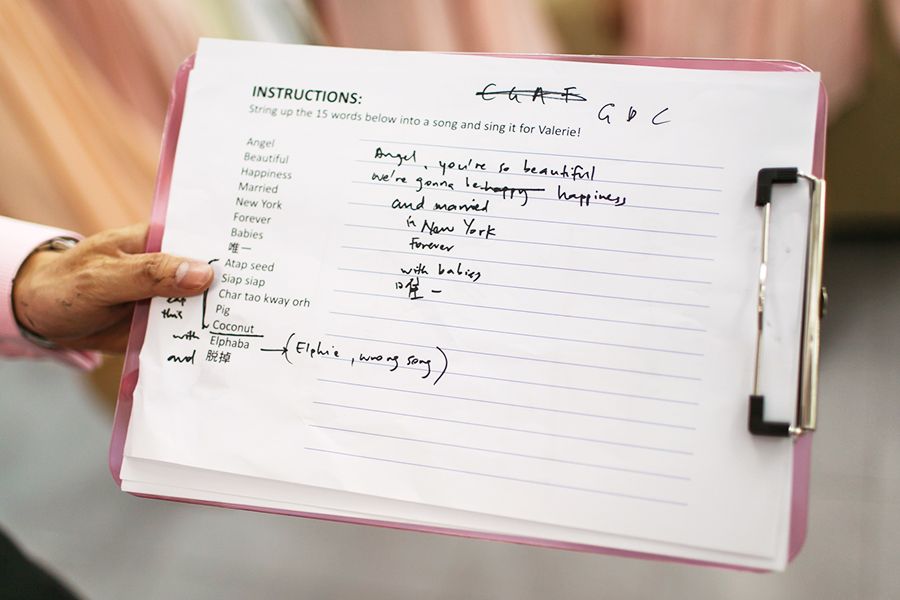 C G A F
G D C
INSTRUCTIONS:
String up the 15 words below into a song and sing it for Valerie!
Angel
Beautiful
Happiness
Married
New York
Forever
Babies
唯一
Atap seed
Siap siap
Char tao kway orh
Pig
Coconut
Elphaba
脱掉
eat
this
with
and
(Elphie, wrong song)
Angel, you're so beautiful
we're gonna be happy happiness
and married
in New York
Forever
with babies
唯一